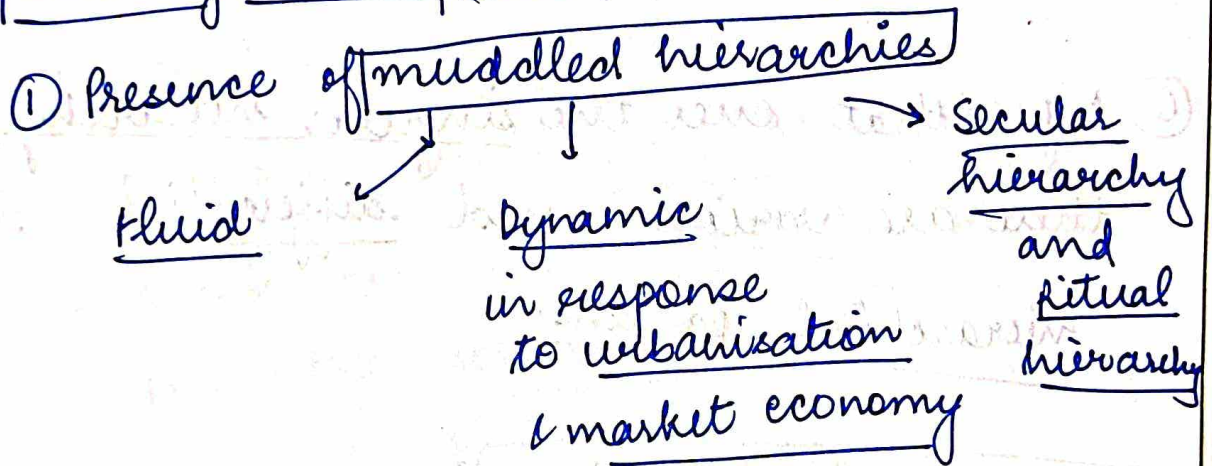 ① Presence of muddled hierarchies
Fluid
Dynamic
in response
to urbanisation
& market economy
Secular
hierarchy
and
Ritual
hierarchy